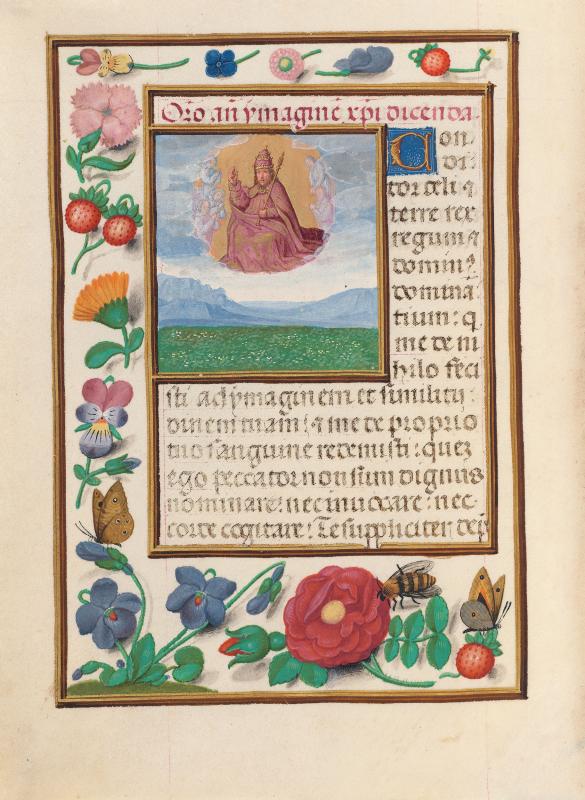 Oro añ ymaginē xp̄i dicenda.
Con
di
tor celi ⁊
terre rex
regum ⁊
domin⁹
domina
tium: q
me de ni
hilo feci
sti ad ymaginem et similitu
dinem tuam: ⁊ me de proprio
tuo sanguine redemisti: quez
ego peccator non sum dignus
nominare: nec inuocare: nec
corde cogitare: Te suppliciter dep̄